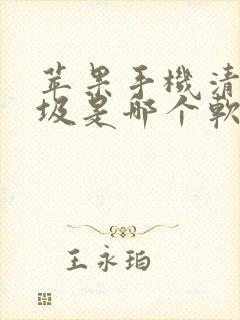 苹果手機清
圾是哪个軟
王永珀